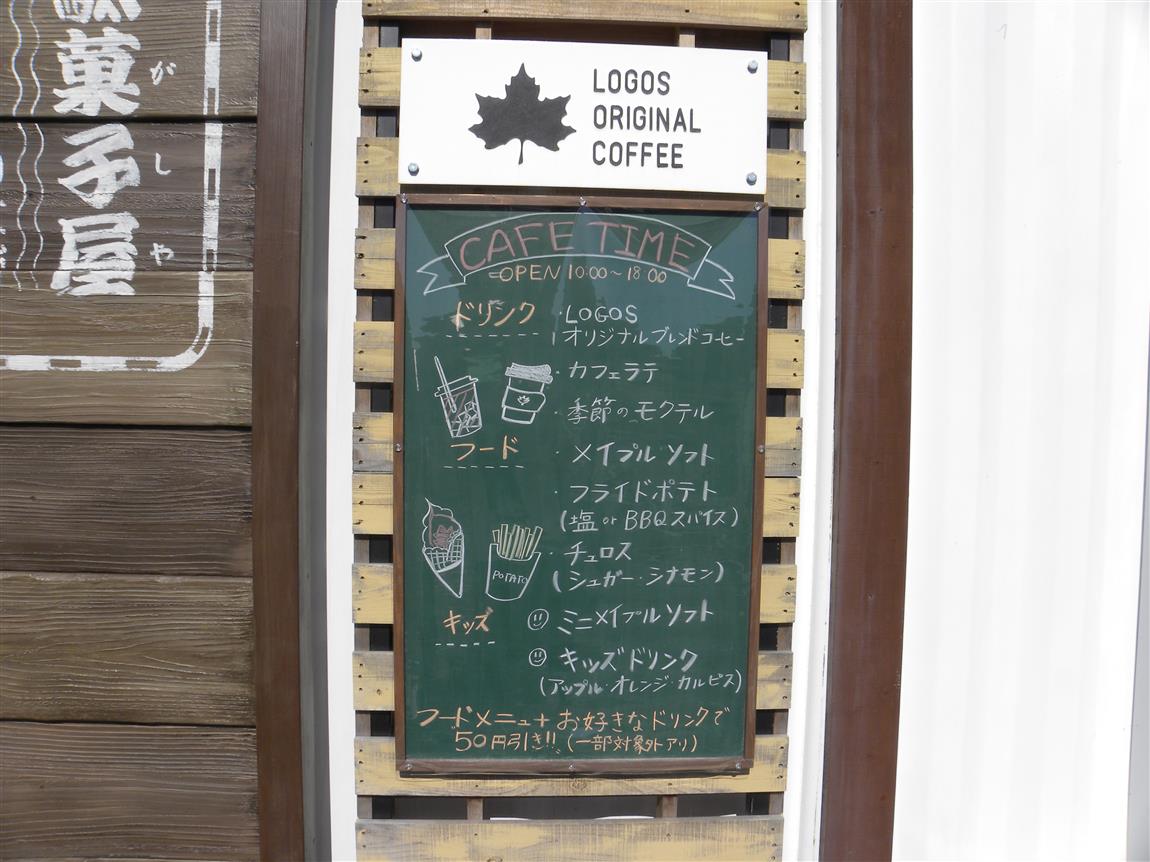 駄菓子屋
がしや
LOGOS
ORIGINAL
COFFEE
CAFE TIME
OPEN 10:00~18:00
ドリンク
・LOGOS
オリジナルブレンドコーヒー
・カフェラテ
・季節のモクテル
フード
・メイプルソフト
・フライドポテト
(塩 or BBQスパイス)
・チュロス
(シュガー・シナモン)
POTATO
キッズ
ミニメイプルソフト
キッズドリンク
(アップル・オレンジ・カルピス)
フードメニュー+お好きなドリンクで
50円引き!!(一部対象外アリ)